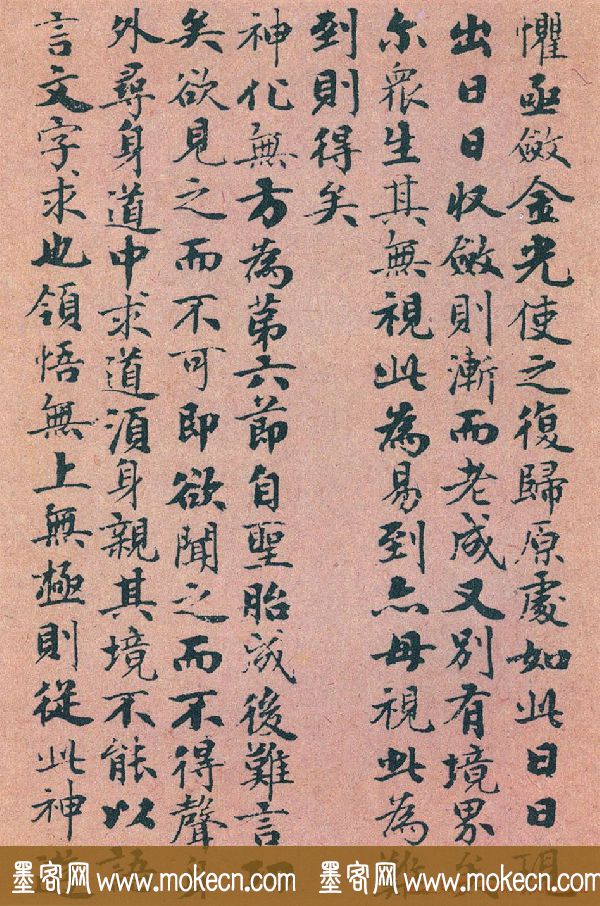 懼亟斂金光使之復歸原處如此日日現
出日日收斂則漸而老成又別有境界我
尓眾生其無視此為易到亦毋視此為難
到則得矣
神化無方為苐六節自聖胎成後難言
矣欲見之而不可即欲聞之而不得聲身
外尋身道中求道湏身親其境不能以語
言文字求也領悟無上無極則從此神道
墨客网 www.mokecn.com 墨客网 www.mokecn.com